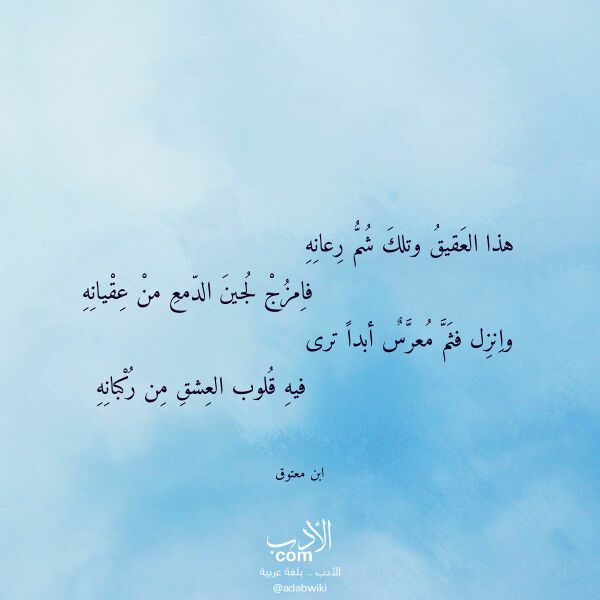 هذا العَقيقُ وتلكَ شُمُّ رِعانِهِ
فاِمزُجْ لُجينَ الدّمعِ منْ عِقْيانِهِ
واِنزِل فثَمَّ مُعرَّسٌ أبداً ترى
فيهِ قُلوب العِشقِ مِن رُكْبانِهِ
ابن معتوق
الأدب
com
الأدب .. بلغة عربية
@adabwiki